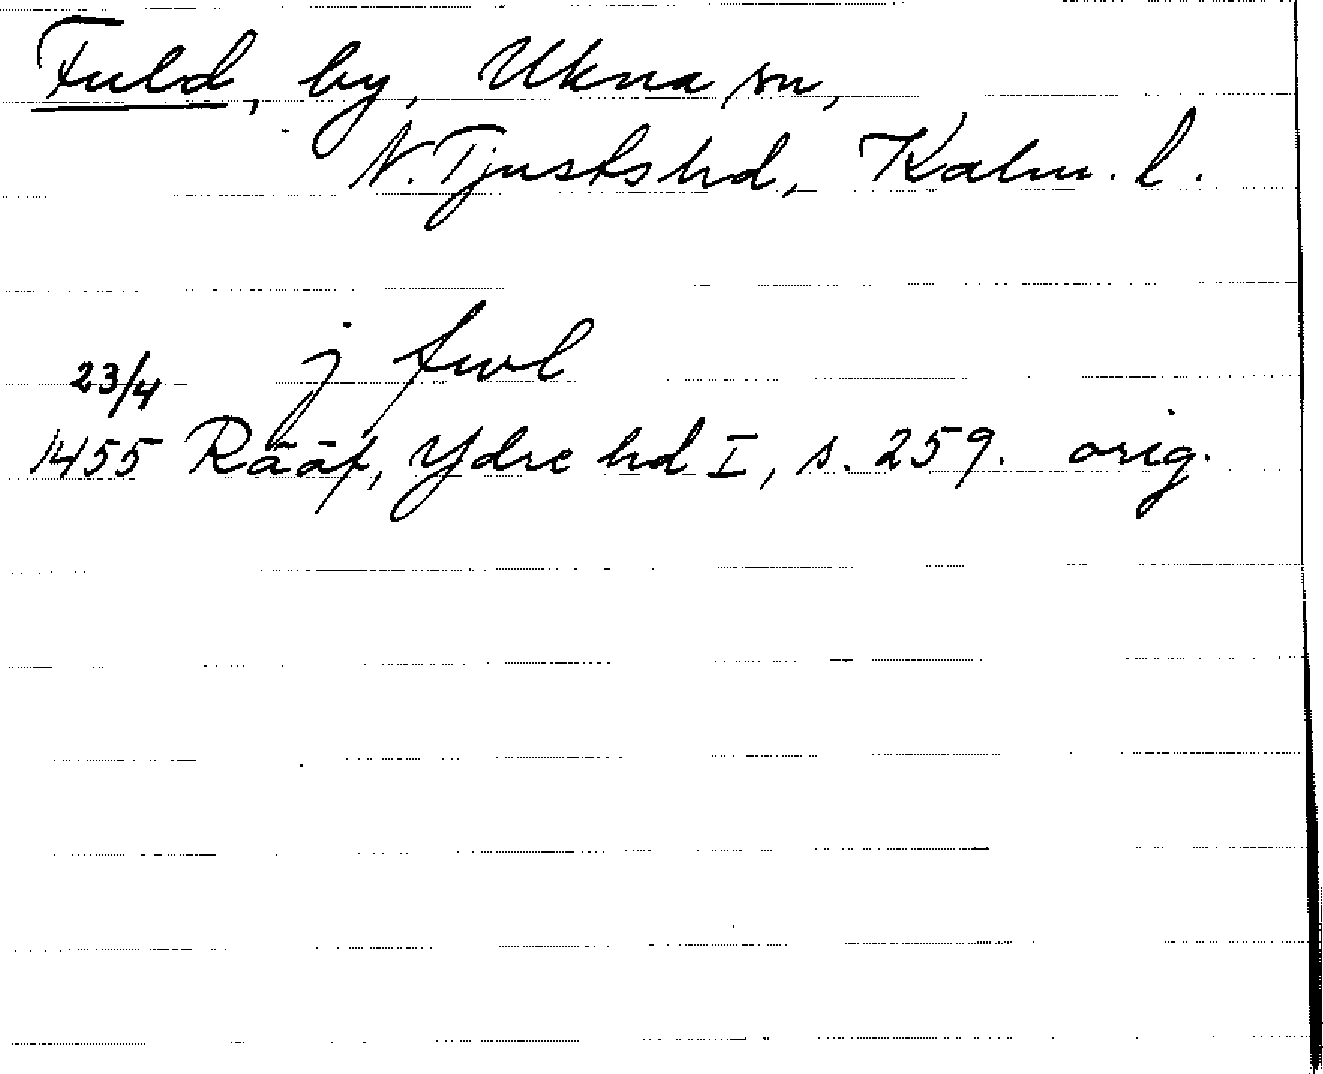 Fuld, by, Ukna sn,
N. Tjusts hd, Kalm. l.
j fwl
23/4
1455 Rääf, Ydre hd I, s. 259. orig.